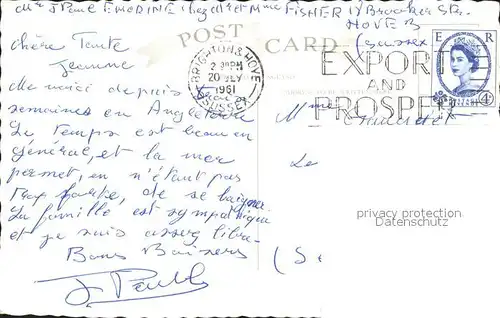 Mr J Paul EMORINE chez Mr et Mme FISHER 17 Brooker Str.
HOVE 3
(Sussex
POST CARD
BRIGHTON & HOVE
2 30PM
20 JLY
1961
SUSSEX
E R
EXPORT
AND
PROSPER
Chère Tante
Jeanne
Me voici depuis
semaines en Angleterre
Le temps est beau en
général, et la mer
permet, en n'étant pas
trop forte, de se baigner
La famille est sympathique
et je suis assez libre.
Bons Baisers
J Paul
Mme
Le
(S
privacy protection
Datenschutz